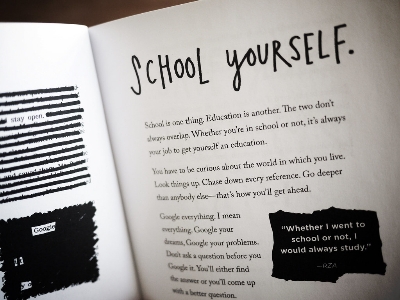 stay open,
Google
SCHOOL YOURSELF.
School is one thing. Education is another. The two don't
always overlap. Whether you're in school or not, it's always
your job to get yourself an education.
You have to be curious about the world in which you live.
Look things up. Chase down every reference. Go deeper
than anybody else—that's how you'll get ahead.
Google everything. I mean
everything. Google your
dreams, Google your problems.
Don't ask a question before you
Google it. You'll either find
the answer or you'll come up
with a better question.
"Whether I went to
school or not, I
would always study."
—RZA